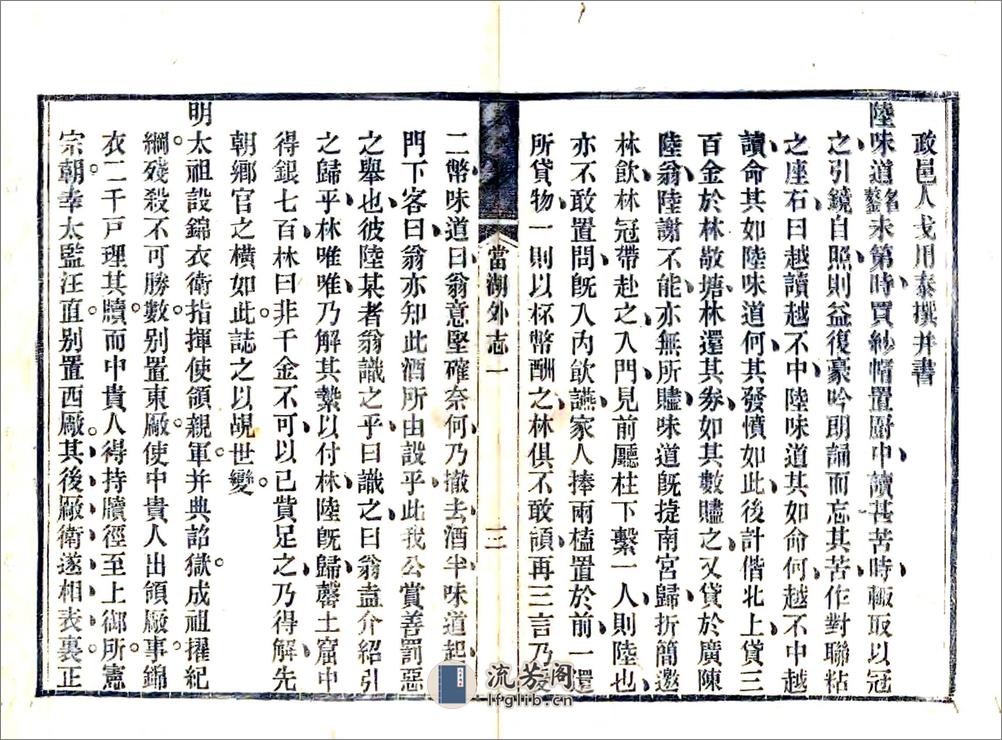 政邑人戈用泰撰并書
陸味道名鏊未第時買紗帽置厨中讀甚苦時輙取以冠
之引鏡自照則益復豪吟朗誦而忘其苦作對聯粘
之座右曰越讀越不中陸味道其如命何越不中越
讀命其如陸味道何其發憤如此後計偕北上貸三
百金於林敬塘林還其券如其數贐之又貸於廣陳
陸翁陸謝不能亦無所贐味道旣捷南宮歸折簡邀
林飲林冠帶赴之入門見前廳柱下繫一人則陸也
亦不敢置問旣入內飲讌家人捧兩榼置於前一還
所貸物一則以杯幣酬之林俱不敢領再三言乃受
當湖外志一
三
二幣味道曰翁意堅確奈何乃撤去酒半味道起
門下客曰翁亦知此酒所由設乎此我公賞善罰惡
之舉也彼陸某者翁識之乎曰識之曰翁盍介紹引
之歸乎林唯唯乃解其縶以付林陸旣歸罄土窟中
得銀七百林曰非千金不可以已貲足之乃得解先
朝鄉官之橫如此誌之以覘世變
明太祖設錦衣衛指揮使領親軍并典詔獄成祖擢紀
綱殘殺不可勝數别置東厰使中貴人出領厰事錦
衣二千戸理其牘而中貴人得持牘徑至上御所憲
宗朝幸太監汪直别置西厰其後厰衛遂相表裏正
流芳阁
lfglib.cn